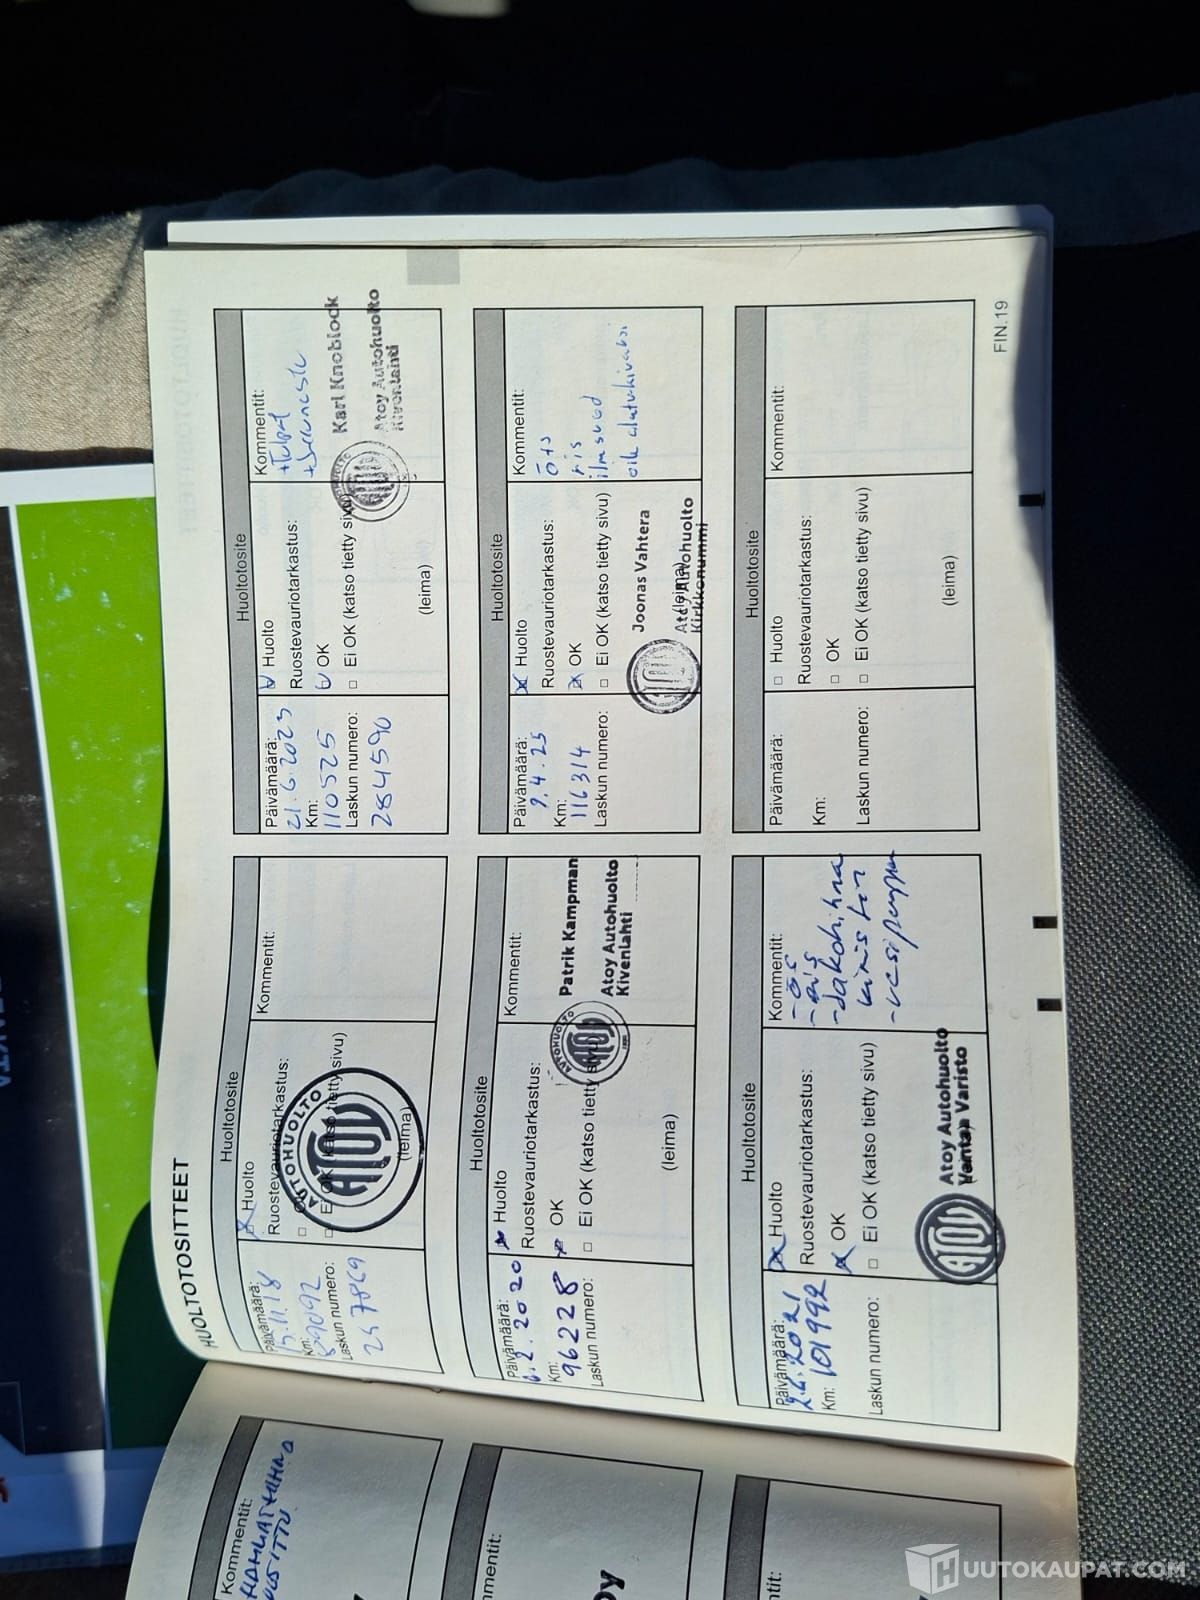 HUOLTOTOSITTEET
Huoltotosite
Päivämäärä:
15.11.18
Km:
89092
Laskun numero:
Huolto
Ruostevauriotarkastus:
Ei OK (katso tietty sivu)
(leima)
AUTOHUOLTO
ATOY
Kommentit:
Huoltotosite
Päivämäärä:
6.2.2020
Km:
96228
Laskun numero:
Huolto
Ruostevauriotarkastus:
OK
Ei OK (katso tietty sivu)
(leima)
Kommentit:
AUTOHUOLTO
ATOY
Patrik Kampman
Atoy Autohuolto
Kivenlahti
Huoltotosite
Päivämäärä:
2.6.2021
Km: 101992
Laskun numero:
Huolto
Ruostevauriotarkastus:
OK
Ei OK (katso tietty sivu)
ATOY
Atoy Autohuolto
Vantaa Varisto
Kommentit:
-jakohihna
-vesipumppu
Huoltotosite
Päivämäärä:
21.6.2023
Km:
110525
Laskun numero:
284590
Huolto
Ruostevauriotarkastus:
OK
Ei OK (katso tietty sivu)
(leima)
Kommentit:
+Tulpat
ATOY
Karl Knoblock
Atoy Autohuolto
Kivenlahti
Huoltotosite
Päivämäärä:
9.4.25
Km:
116314
Laskun numero:
Huolto
Ruostevauriotarkastus:
OK
Ei OK (katso tietty sivu)
(leima)
ATOY
Joonas Vahtera
Atoy Autohuolto
Kirkkonummi
Kommentit:
ilmsuod
oik alatukivarsi
Huoltotosite
Päivämäärä:
Km:
Laskun numero:
Huolto
Ruostevauriotarkastus:
OK
Ei OK (katso tietty sivu)
(leima)
Kommentit:
FIN.19
Kommentit:
HAMMASHIHNA
mmentit:
oy
tit:
HUUTOKAUPAT.COM